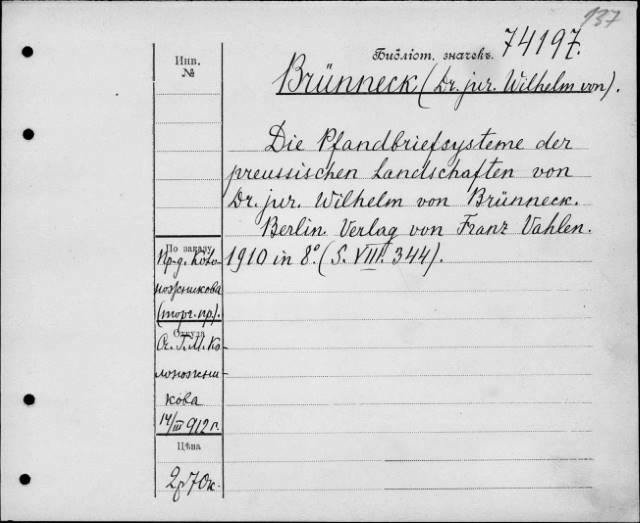 137
Инв.
№
Библіот. значекъ. 74197.
Brünneck (Dr. jur. Wilhelm von).
Die Pfandbriefsysteme der
preussischen Landschaften von
Dr. jur. Wilhelm von Brünneck.
Berlin. Verlag von Franz Vahlen.
1910 in 8º. (S. VIII. 344).
По заказу
Пр-д. Коло-
ножникова
(торг. пр).
Откуда
От Г. М. Ко-
ложни-
кова
14/III 912 г.
Цѣна
2р70к.